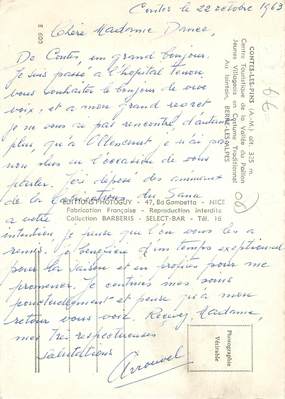 Contes le 22 octobre 1963
Chère Madame Dance,
De Contes, un grand bonjour.
Je suis passé à l'hopital Tenon,
vous souhaiter le bonjour de vive
voix, et à mon grand regret
je ne vous ai pas rencontré, d'autant
plus, qu'à j'ai pas
non plus eu l'occasion de vous
J'ai déposé des animaux
de la
à votre
intention je pense que l'on vous les a
remis. Je bénéficie d'un temps exceptionnel
pour la saison et en profite pour me
promener. Je continue mes soins
ponctuellement et pense qu'à mon
retour vous voir. Recevez Madame,
mes très respectueuses
salutations
Arrouvel
CONTES-LES-PINS (A.-M.) alt. 325 m.
Centre Touristique de la Vallée du Paillon
Jeunes Villageois en Costume Traditionnel
Au lointain, BERRE-LES-ALPES
EDITIONS PHOTOGUY - 47, Bd Gambetta - NICE
Fabrication Française - Reproduction interdite
Collection BARBERIS - SELECT-BAR - Tél. 16
Photographie
Véritable